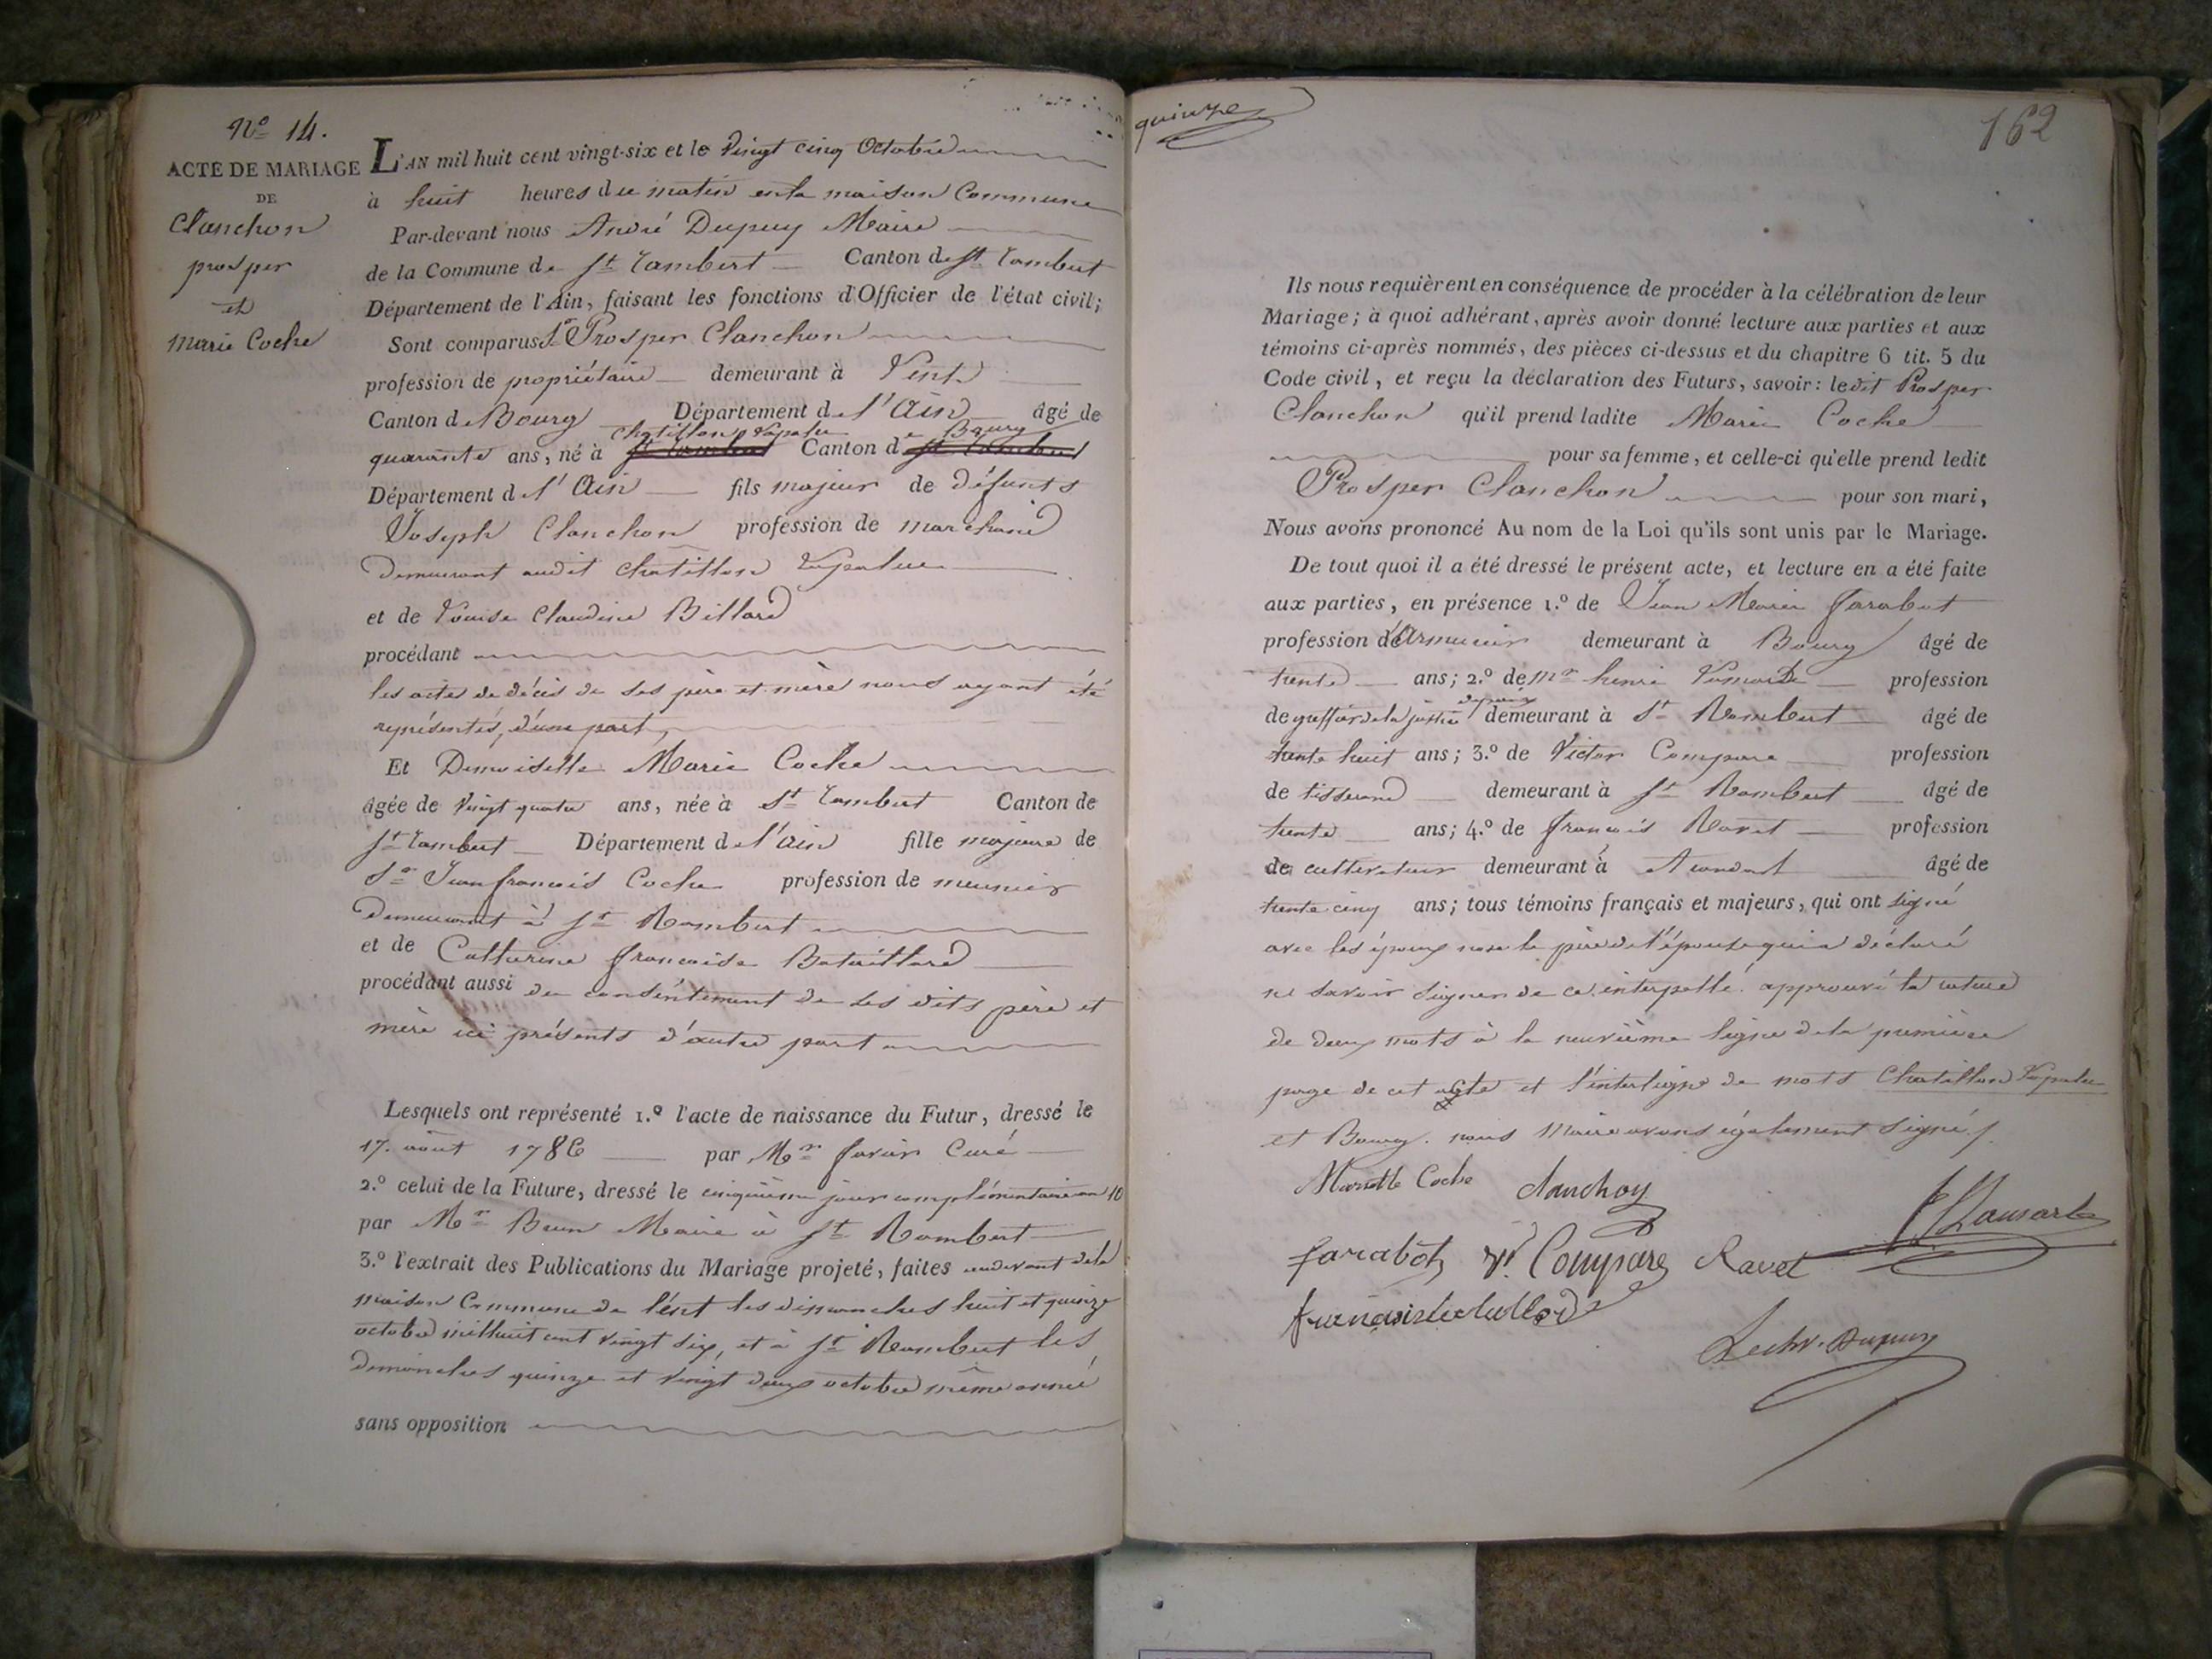 N.o 14.
ACTE DE MARIAGE
DE
Clanchon
prosper
et
Marie Coche
L'AN mil huit cent vingt-six et le vingt cinq Octobre
à huit heures du matin en la maison Commune
Par-devant nous André Dupuy Maire
de la Commune de St Rambert Canton de St Rambert
Département de l'Ain, faisant les fonctions d'Officier de l'état civil;
Sont comparus Sr Prosper Clanchon
profession de propriétaire demeurant à
Canton de Bourg Département de l'Ain âgé de
chatillon Lapalue Bourg
quarante ans, né à St Rambert Canton de St Rambert
Département de l'Ain fils majeur de défunts
Joseph Clanchon profession de marchand
Demeurant audit chatillon Lapalue
et de Louise Claudine Billard
procédant
les actes de décès de ses père et mère nous ayant été
représentés, d'une part,
Et Demoiselle Marie Coche
âgée de vingt quatre ans, née à St Rambert Canton de
St Rambert Département de l'Ain fille majeure de
Sr Jean francois Coche profession de meunier
Demeurant à St Rambert
et de Catherine francoise Bataillard
procédant aussi du consentement de ses dits père et
mère ici présents d'autre part
Lesquels ont représenté 1.o l'acte de naissance du Futur, dressé le
17. août 1786 par Mr Curé
2.o celui de la Future, dressé le cinquième jour complémentaire an 10
par Mr Brun Maire à St Rambert
3.o l'extrait des Publications du Mariage projeté, faites audevant de la
maison Commune de les dimanches huit et quinze
octobre mil huit cent vingt six, et à St Rambert les
dimanches quinze et vingt deux octobre même année
sans opposition
quinze
162
Ils nous requièrent en conséquence de procéder à la célébration de leur
Mariage; à quoi adhérant, après avoir donné lecture aux parties et aux
témoins ci-après nommés, des pièces ci-dessus et du chapitre 6 tit. 5 du
Code civil, et reçu la déclaration des Futurs, savoir: ledit Prosper
Clanchon qu'il prend ladite Marie Coche
pour sa femme, et celle-ci qu'elle prend ledit
Prosper Clanchon pour son mari,
Nous avons prononcé Au nom de la Loi qu'ils sont unis par le Mariage.
De tout quoi il a été dressé le présent acte, et lecture en a été faite
aux parties, en présence 1.o de Jean Marie farabot
profession d'Armurier demeurant à Bourg âgé de
trente ans; 2.o de Mr henri profession
de paix
de greffier de la justice demeurant à St Rambert âgé de
trente huit ans; 3.o de Victor Compare profession
de tisserand demeurant à St Rambert âgé de
trente ans; 4.o de francois Ravet profession
de cultivateur demeurant à Arandas âgé de
trente cinq ans; tous témoins français et majeurs, qui ont signé
avec les époux non le père de l'épouse qui a déclaré
ne savoir signer de ce interpellé. approuvé la rature
de deux mots à la neuvième ligne de la première
page de cet acte et l'interligne de mots Chatillon Lapalue
et Bourg. nous Maire avons également signé.
Coche clanchon
farabot vr Compare Ravet
Dupuy